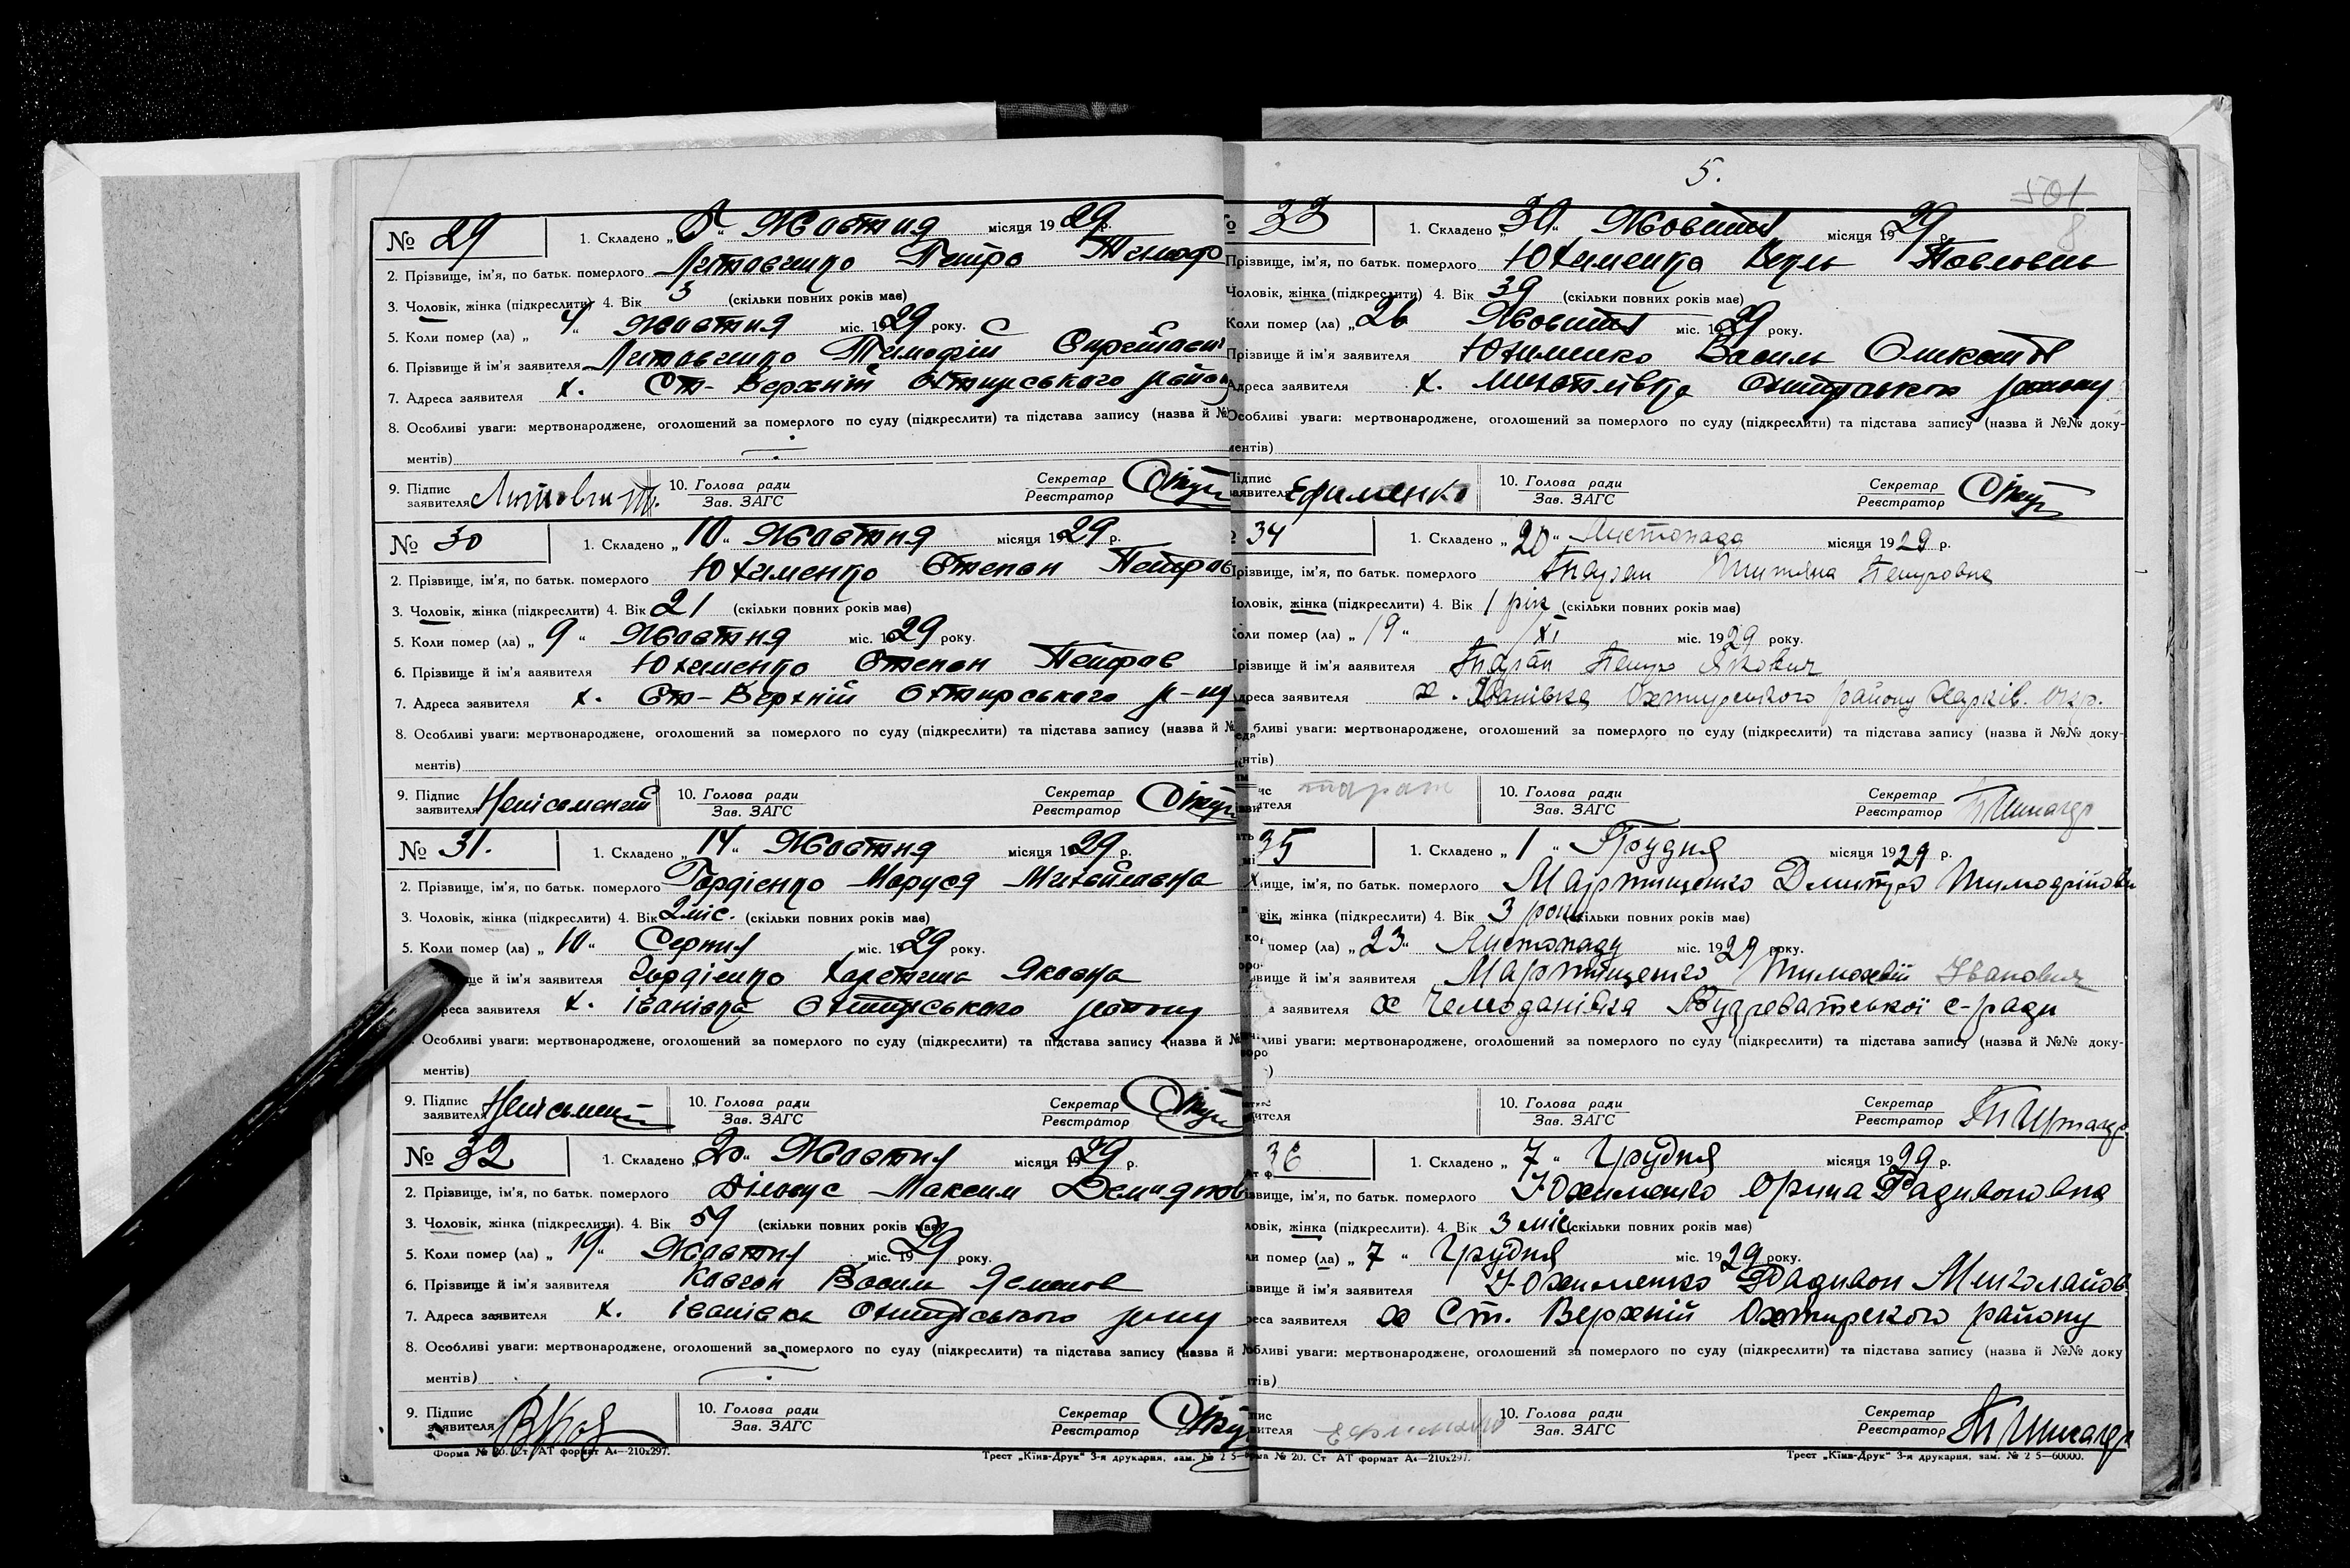 № 29
1. Складено „ 6 “ Жовтня місяця 1929 р.
2. Прізвище, ім'я, по батьк. померлого Литовченко Петро Тимоф
3. Чоловік, жінка (підкреслити) 4. Вік 3 (скільки повних років має)
5. Коли помер (ла) „ 4 “ Жовтня міс. 1929 року.
6. Прізвище й ім'я заявителя Литовченко Тимофій
7. Адреса заявителя х. Ст-Верхній Охтирського район
8. Особливі уваги: мертвонароджене, оголошений за померлого по суду (підкреслити) та підстава запису (назва й №
ментів)
9. Підпис заявителя 10. Голова ради Зав. ЗАГС Секретар Реєстратор
№ 30
1. Складено „ 10 “ Жовтня місяця 1929 р.
2. Прізвище, ім'я, по батьк. померлого Юхименко Степан Петров
3. Чоловік, жінка (підкреслити) 4. Вік 21 (скільки повних років має)
5. Коли помер (ла) „ 9 “ Жовтня міс. 1929 року.
6. Прізвище й ім'я заявителя Юхименко Степан Петров
7. Адреса заявителя х. Ст-Верхній Охтирського р-ну
8. Особливі уваги: мертвонароджене, оголошений за померлого по суду (підкреслити) та підстава запису (назва й №
ментів)
9. Підпис заявителя Неписьменний 10. Голова ради Зав. ЗАГС Секретар Реєстратор
№ 31.
1. Складено „ 14 “ Жовтня місяця 1929 р.
2. Прізвище, ім'я, по батьк. померлого Гордієнко Маруся Михайловна
3. Чоловік, жінка (підкреслити) 4. Вік 2 міс. (скільки повних років має)
5. Коли помер (ла) „ 10 “ Серпня міс. 1929 року.
ще й ім'я заявителя Гордієнко Харетина Яковна
реса заявителя х. Іванівка Охтирського району
Особливі уваги: мертвонароджене, оголошений за померлого по суду (підкреслити) та підстава запису (назва й №
ментів)
9. Підпис заявителя 10. Голова ради Зав. ЗАГС Секретар Реєстратор
№ 32
1. Складено „ 20 “ Жовтня місяця 1929 р.
2. Прізвище, ім'я, по батьк. померлого Білоус Максим Демидков
3. Чоловік, жінка (підкреслити). 4. Вік 59 (скільки повних років має)
5. Коли помер (ла) „ 19 “ Жовтня міс. 1929 року.
6. Прізвище й ім'я заявителя Ковган Васил
7. Адреса заявителя х. Іванівка Охтирського р-ну
8. Особливі уваги: мертвонароджене, оголошений за померлого по суду (підкреслити) та підстава запису (назва й
ментів)
9. Підпис заявителя 10. Голова ради Зав. ЗАГС Секретар Реєстратор
Форма № 20. Ст АТ формат А₄—210x297. Трест „Київ-Друк“ 3-я друкарня, зам. № 2 5—
5.
501
8
33
1. Складено „ 30 “ Жовтня місяця 1929 р.
Прізвище, ім'я, по батьк. померлого Юхименко Павловна
Чоловік, жінка (підкреслити) 4. Вік 39 (скільки повних років має)
Коли помер (ла) „ 26 Жовтня міс. 1929 року.
Прізвище й ім'я заявителя Юхименко Василь
Адреса заявителя х. Охтирського району
Особливі уваги: мертвонароджене, оголошений за померлого по суду (підкреслити) та підстава запису (назва й №№ доку-
ментів)
Підпис заявителя Ефименко 10. Голова ради Зав. ЗАГС Секретар Реєстратор
34
1. Складено „ 20 “ Листопада місяця 1929 р.
Прізвище, ім'я, по батьк. померлого Петровна
Чоловік, жінка (підкреслити) 4. Вік 1 рік (скільки повних років має)
Коли помер (ла) „ 19 “ XI міс. 1929 року.
Прізвище й ім'я заявителя Петро Якович
Адреса заявителя х. Іванівка Охтирського району Харків. окр.
бливі уваги: мертвонароджене, оголошений за померлого по суду (підкреслити) та підстава запису (назва й №№ доку-
нтів)
10. Голова ради Зав. ЗАГС Секретар Реєстратор
35
1. Складено „ 1 “ Грудня місяця 1929 р.
ище, ім'я, по батьк. померлого Мартищенко Дмитро Тимофійови
вік, жінка (підкреслити) 4. Вік 3 роки (скільки повних років має)
помер (ла) „ 23 “ Листопаду міс. 1929 року.
вище й ім'я заявителя Мартищенко Тимофій Іванович
заявителя х Чемоданівка с-ради
ливі уваги: мертвонароджене, оголошений за померлого по суду (підкреслити) та підстава запису (назва й №№ доку-
)
10. Голова ради Зав. ЗАГС Секретар Реєстратор
36
1. Складено „ 7 “ Грудня місяця 1929 р.
ізвище, ім'я, по батьк. померлого Юхименко Орина Радивоновна
ловік, жінка (підкреслити). 4. Вік 3 міс (скільки повних років має)
ли помер (ла) „ 7 “ Грудня міс. 1929 року.
ізвище й ім'я заявителя Юхименко Радивон Миколайов
реса заявителя х Ст. Верхній Охтирського району
обливі уваги: мертвонароджене, оголошений за померлого по суду (підкреслити) та підстава запису (назва й №№ доку
нтів)
Ефименко 10. Голова ради Зав. ЗАГС Секретар Реєстратор
рма № 20. Ст АТ формат А₄—210x297. Трест „Київ-Друк“ 3-я друкарня, зам. № 2 5—60000.